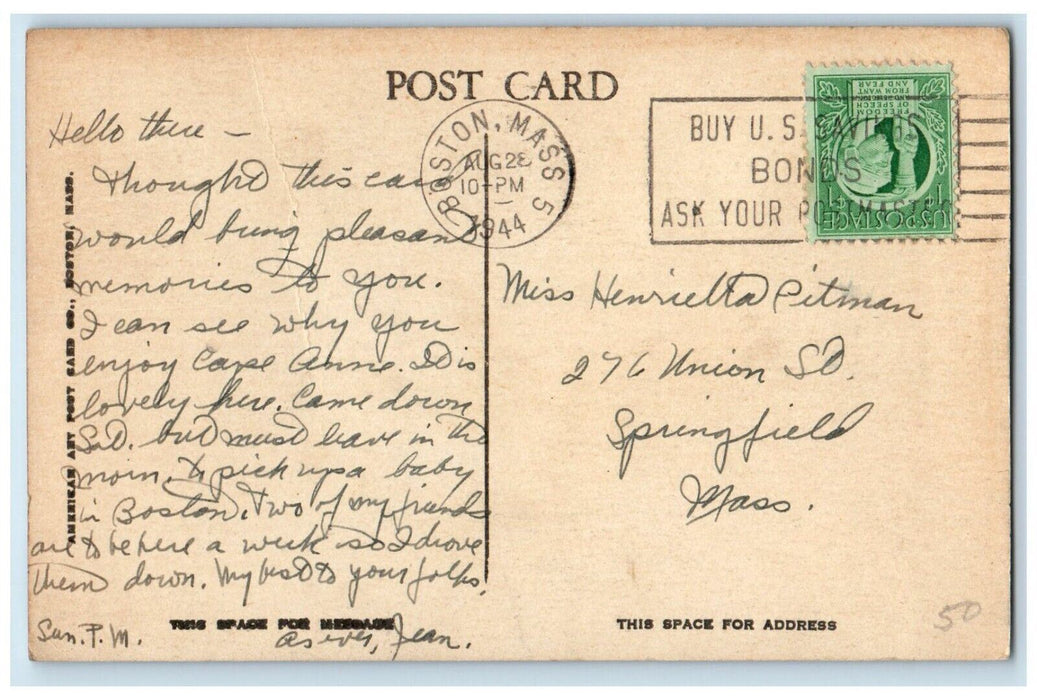 POST CARD
Hello there —
Thought this card
would bring pleasant
memories to you.
I can see why you
enjoy Cape Anne. It is
lovely here. Came down
Sat. but must leave in the
morn. to pick up a baby
in Boston. Two of my friends
are to be here a week so I drove
them down. My best to your folks.
As ever, Jean.
Sun. P.M.
THIS SPACE FOR MESSAGE
AMERICAN ART POST CARD CO., BOSTON, MASS.
BOSTON, MASS. 5
AUG 28
10-PM
1944
BUY U.S. SAVINGS
BONDS
ASK YOUR POSTMASTER
FREEDOM
OF SPEECH
AND RELIGION
FROM WANT
AND FEAR
U.S. POSTAGE
1¢ 1¢
Miss Henrietta Pitman
276 Union St.
Springfield
Mass.
THIS SPACE FOR ADDRESS
50